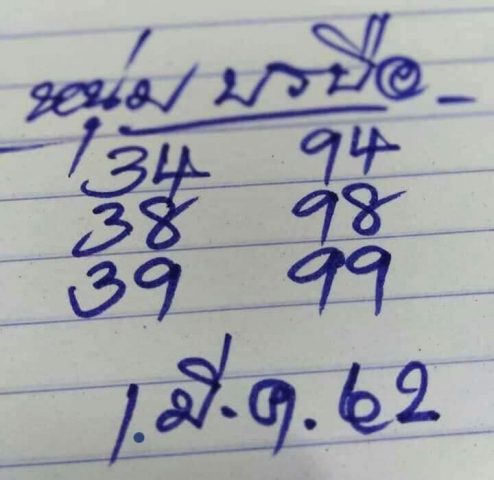 หนุ่ม บรบือ
34 94
38 98
39 99
1.มี.ค.62